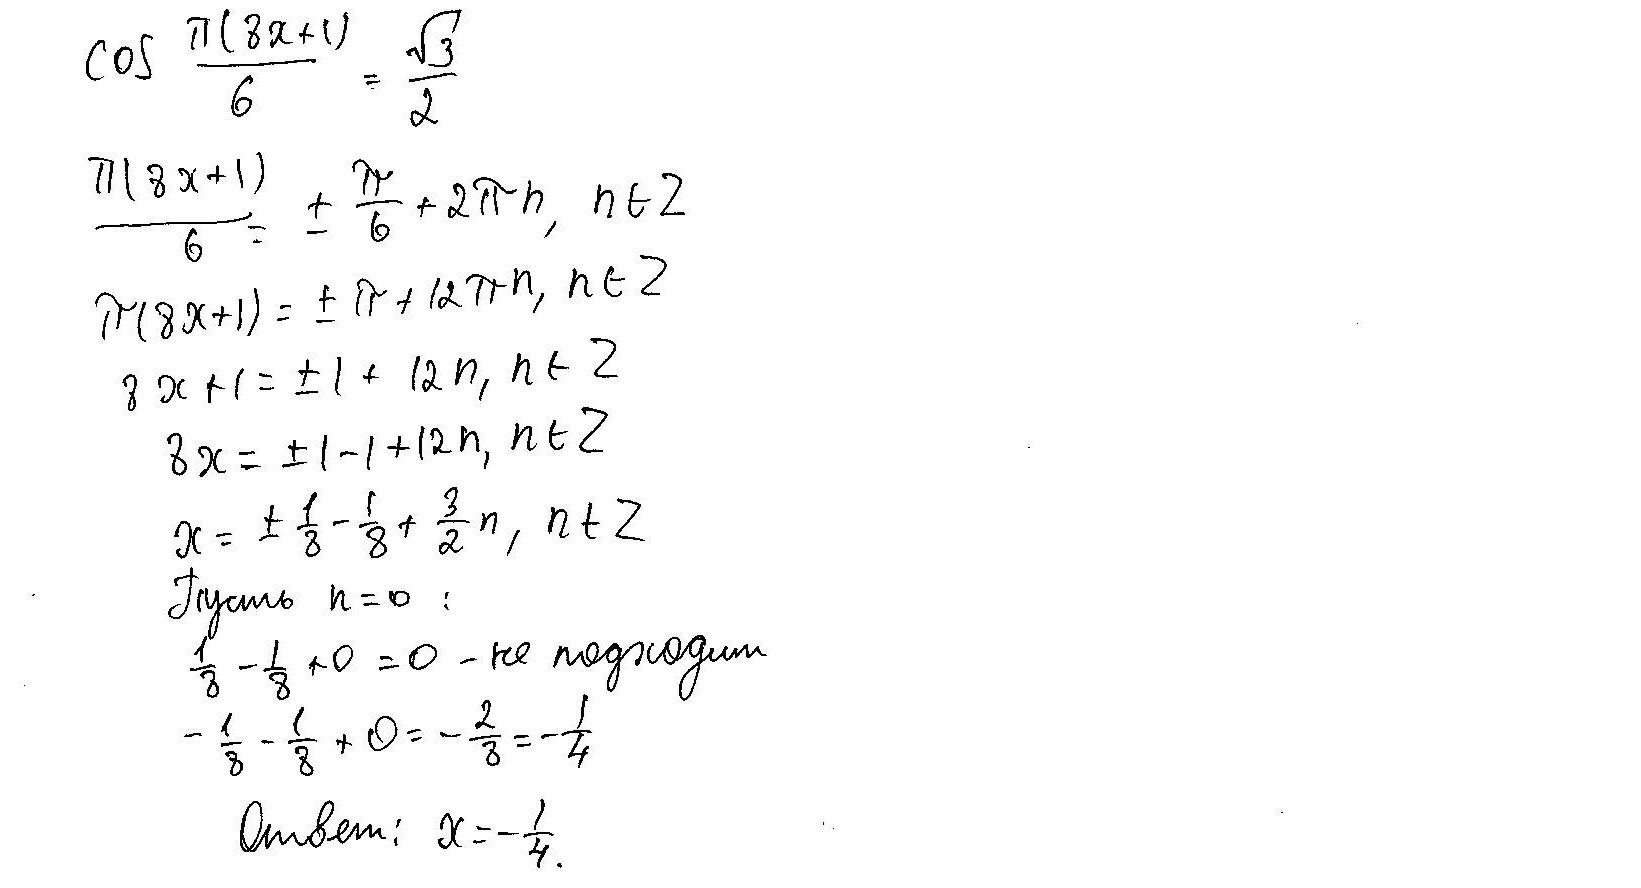 cos π(8x+1)/6 = √3/2
π(8x+1)/6 = ± π/6 + 2πn, n∈Z
π(8x+1) = ± π + 12πn, n∈Z
8x+1 = ±1 + 12n, n∈Z
8x = ±1-1+12n, n∈Z
x = ± 1/8 - 1/8 + 3/2 n, n∈Z
Пусть n=0 :
1/8 - 1/8 + 0 = 0 - не подходит
- 1/8 - 1/8 + 0 = - 2/8 = - 1/4
Ответ: x = - 1/4.